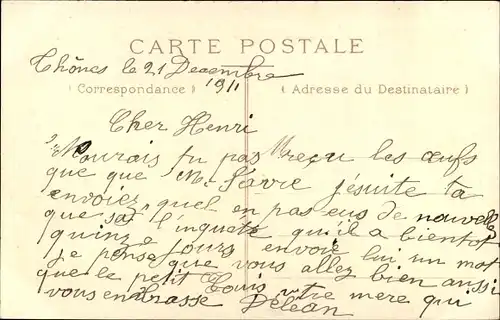 CARTE POSTALE
Thônes le 21 Decembre
1911
( Correspondance ) ( Adresse du Destinataire )
Cher Henri
N'ourais tu pas reçu les œufs
que que Mr Favre jésuite ta
envoiez quel en pas eus de nouvelle
que sa l'inquete qu'il a bientot
quinze jours envoie lui un mot
je pense que vous allez bien aussi
que le petit Louis votre mere qui
vous embrasse Délean